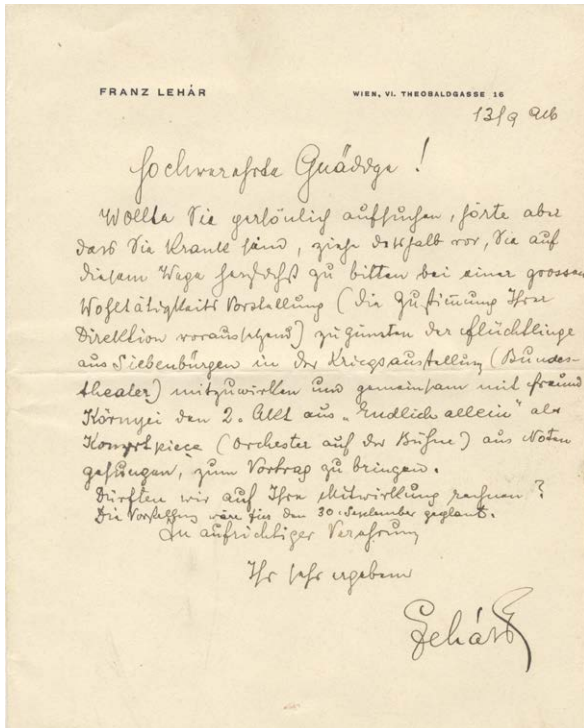 FRANZ LEHÁR
WIEN, VI. THEOBALDGASSE 16
13/9 916
Hochverehrte Gnädige!
Wollte Sie persönlich aufsuchen, hörte aber
dass Sie krank sind, ziehe deshalb vor, Sie auf
diesem Wege herzlichst zu bitten bei einer grossen
Wohltätigkeits Vorstellung (die Zustimmung Ihrer
Direktion voraussetzend) zu Gunsten der Flüchtlinge
aus Siebenbürgen in der Kriegsausstellung (Bundes-
theater) mitzuwirken und gemeinsam mit Freund
Környei den 2. Akt aus „Endlich allein" als
Konzertpiece (Orchester auf der Bühne) aus Noten
gesungen, zum Vortrag zu bringen.
Dürften wir auf Ihre Mitwirkung rechnen?
Die Vorstellung wäre für den 30. September geplant.
In aufrichtiger Verehrung
Ihr sehr ergebener
Lehár